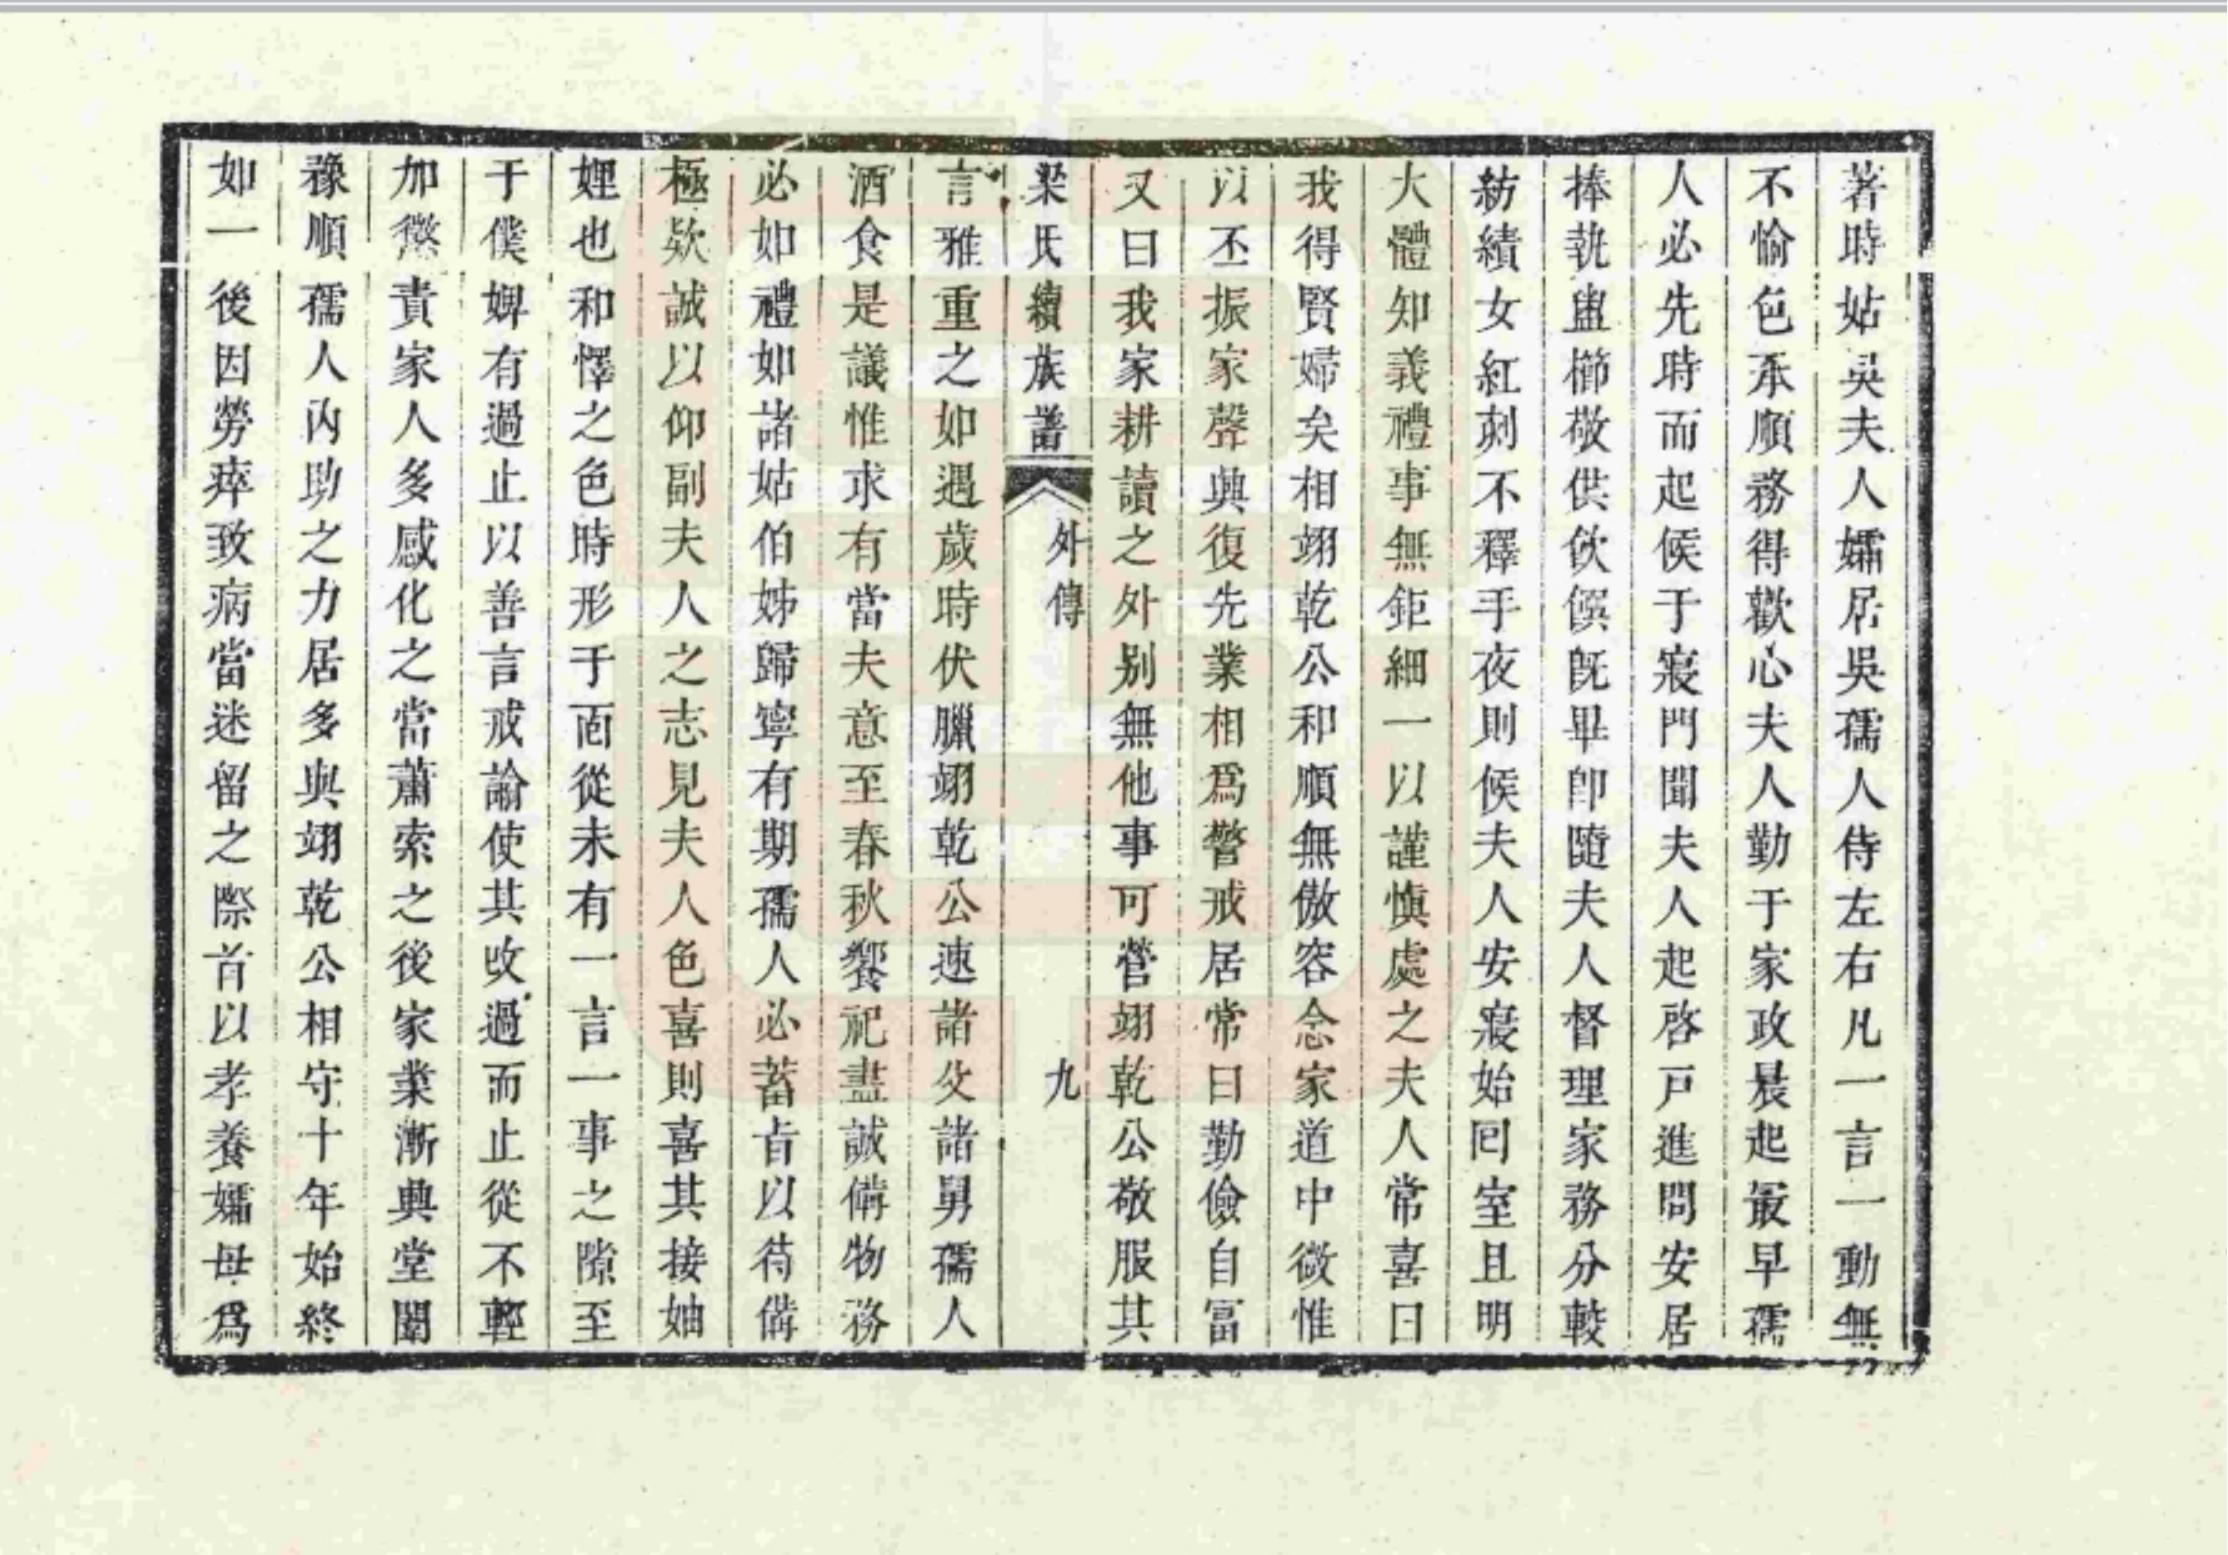 著時姑吳夫人孀居吳孺人侍左右凡一言一動無
不愉色承順務得歡心夫人勤于家政晨起最早孺
人必先時而起候于寢門聞夫人起啓戸進問安居
捧執盥櫛敬供飲饌既畢卽隨夫人督理家務分較
紡績女紅刺不釋手夜則候夫人安寢始囘室且明
大體知義禮事無鉅細一以謹愼處之夫人常喜曰
我得賢婦矣相翊乾公和順無傲容念家道中微惟
以丕振家聲興復先業相爲警戒居常曰勤儉自冨
又曰我家耕讀之外別無他事可營翊乾公敬服其
梁氏續族譜　外傳　九
言雅重之如遇歲時伏臘翊乾公速諸父諸舅孺人
酒食是議惟求有當夫意至春秋饗祀盡誠備物務
必如禮如諸姑伯姊歸寧有期孺人必蓄旨以待偹
極欵誠以仰副夫人之志見夫人色喜則喜其接妯
娌也和懌之色時形于面從未有一言一事之隙至
于僕婢有過止以善言戒諭使其改過而止從不輕
加懲責家人多感化之當蕭索之後家業漸興堂闈
豫順孺人內助之力居多與翊乾公相守十年始終
如一後因勞瘁致病當迷留之際首以孝養孀母爲